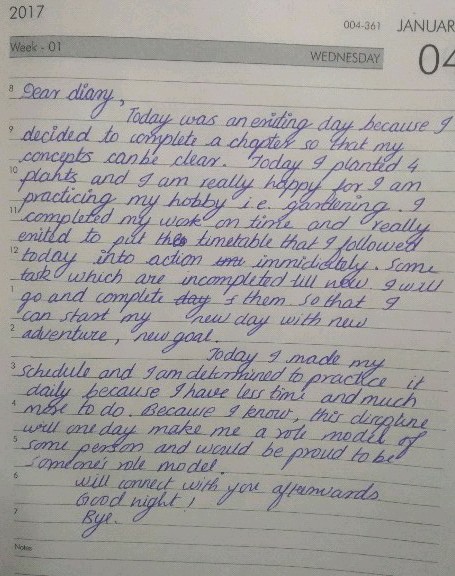 2017
004-361 JANUAR
Week - 01
WEDNESDAY 04
8 Dear diary,
Today was an exiting day because I
9 decided to complete a chapter so that my
concepts can be clear. Today I planted 4
10 plants and I am really happy for I am
practicing my hobby i.e. gardening. I
11 completed my work on time and really
exited to put the timetable that I followed
12 today into action immidiately. Some
task which are incompleted till now I will
1 go and complete day them so that I
can start my new day with new
2 adventure, new goal.
Today I made my
3 schedule and I am determined to practice it
daily because I have less time and much
4 more to do. Because I know, this discipline
will one day make me a role model of
5 some person and would be proud to be
someone's role model.
6 will connect with you afterwards
Good night!
7 Bye.
Notes